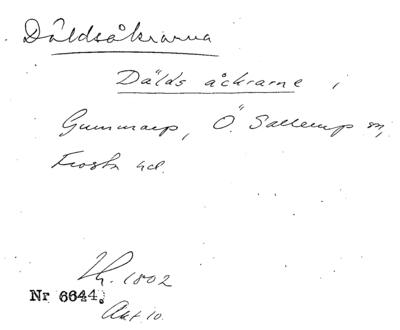 Däldsåkrarna
Dälds åckrarne,
Gummarp, Ö. Sallerup sn,
Frosta hd.
Lh. 1802
Nr 6644.
Akt 10.